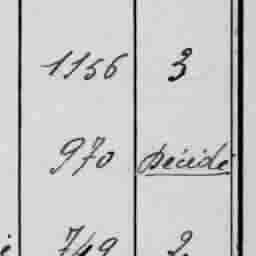 1156 3
970 Décidé
749 2